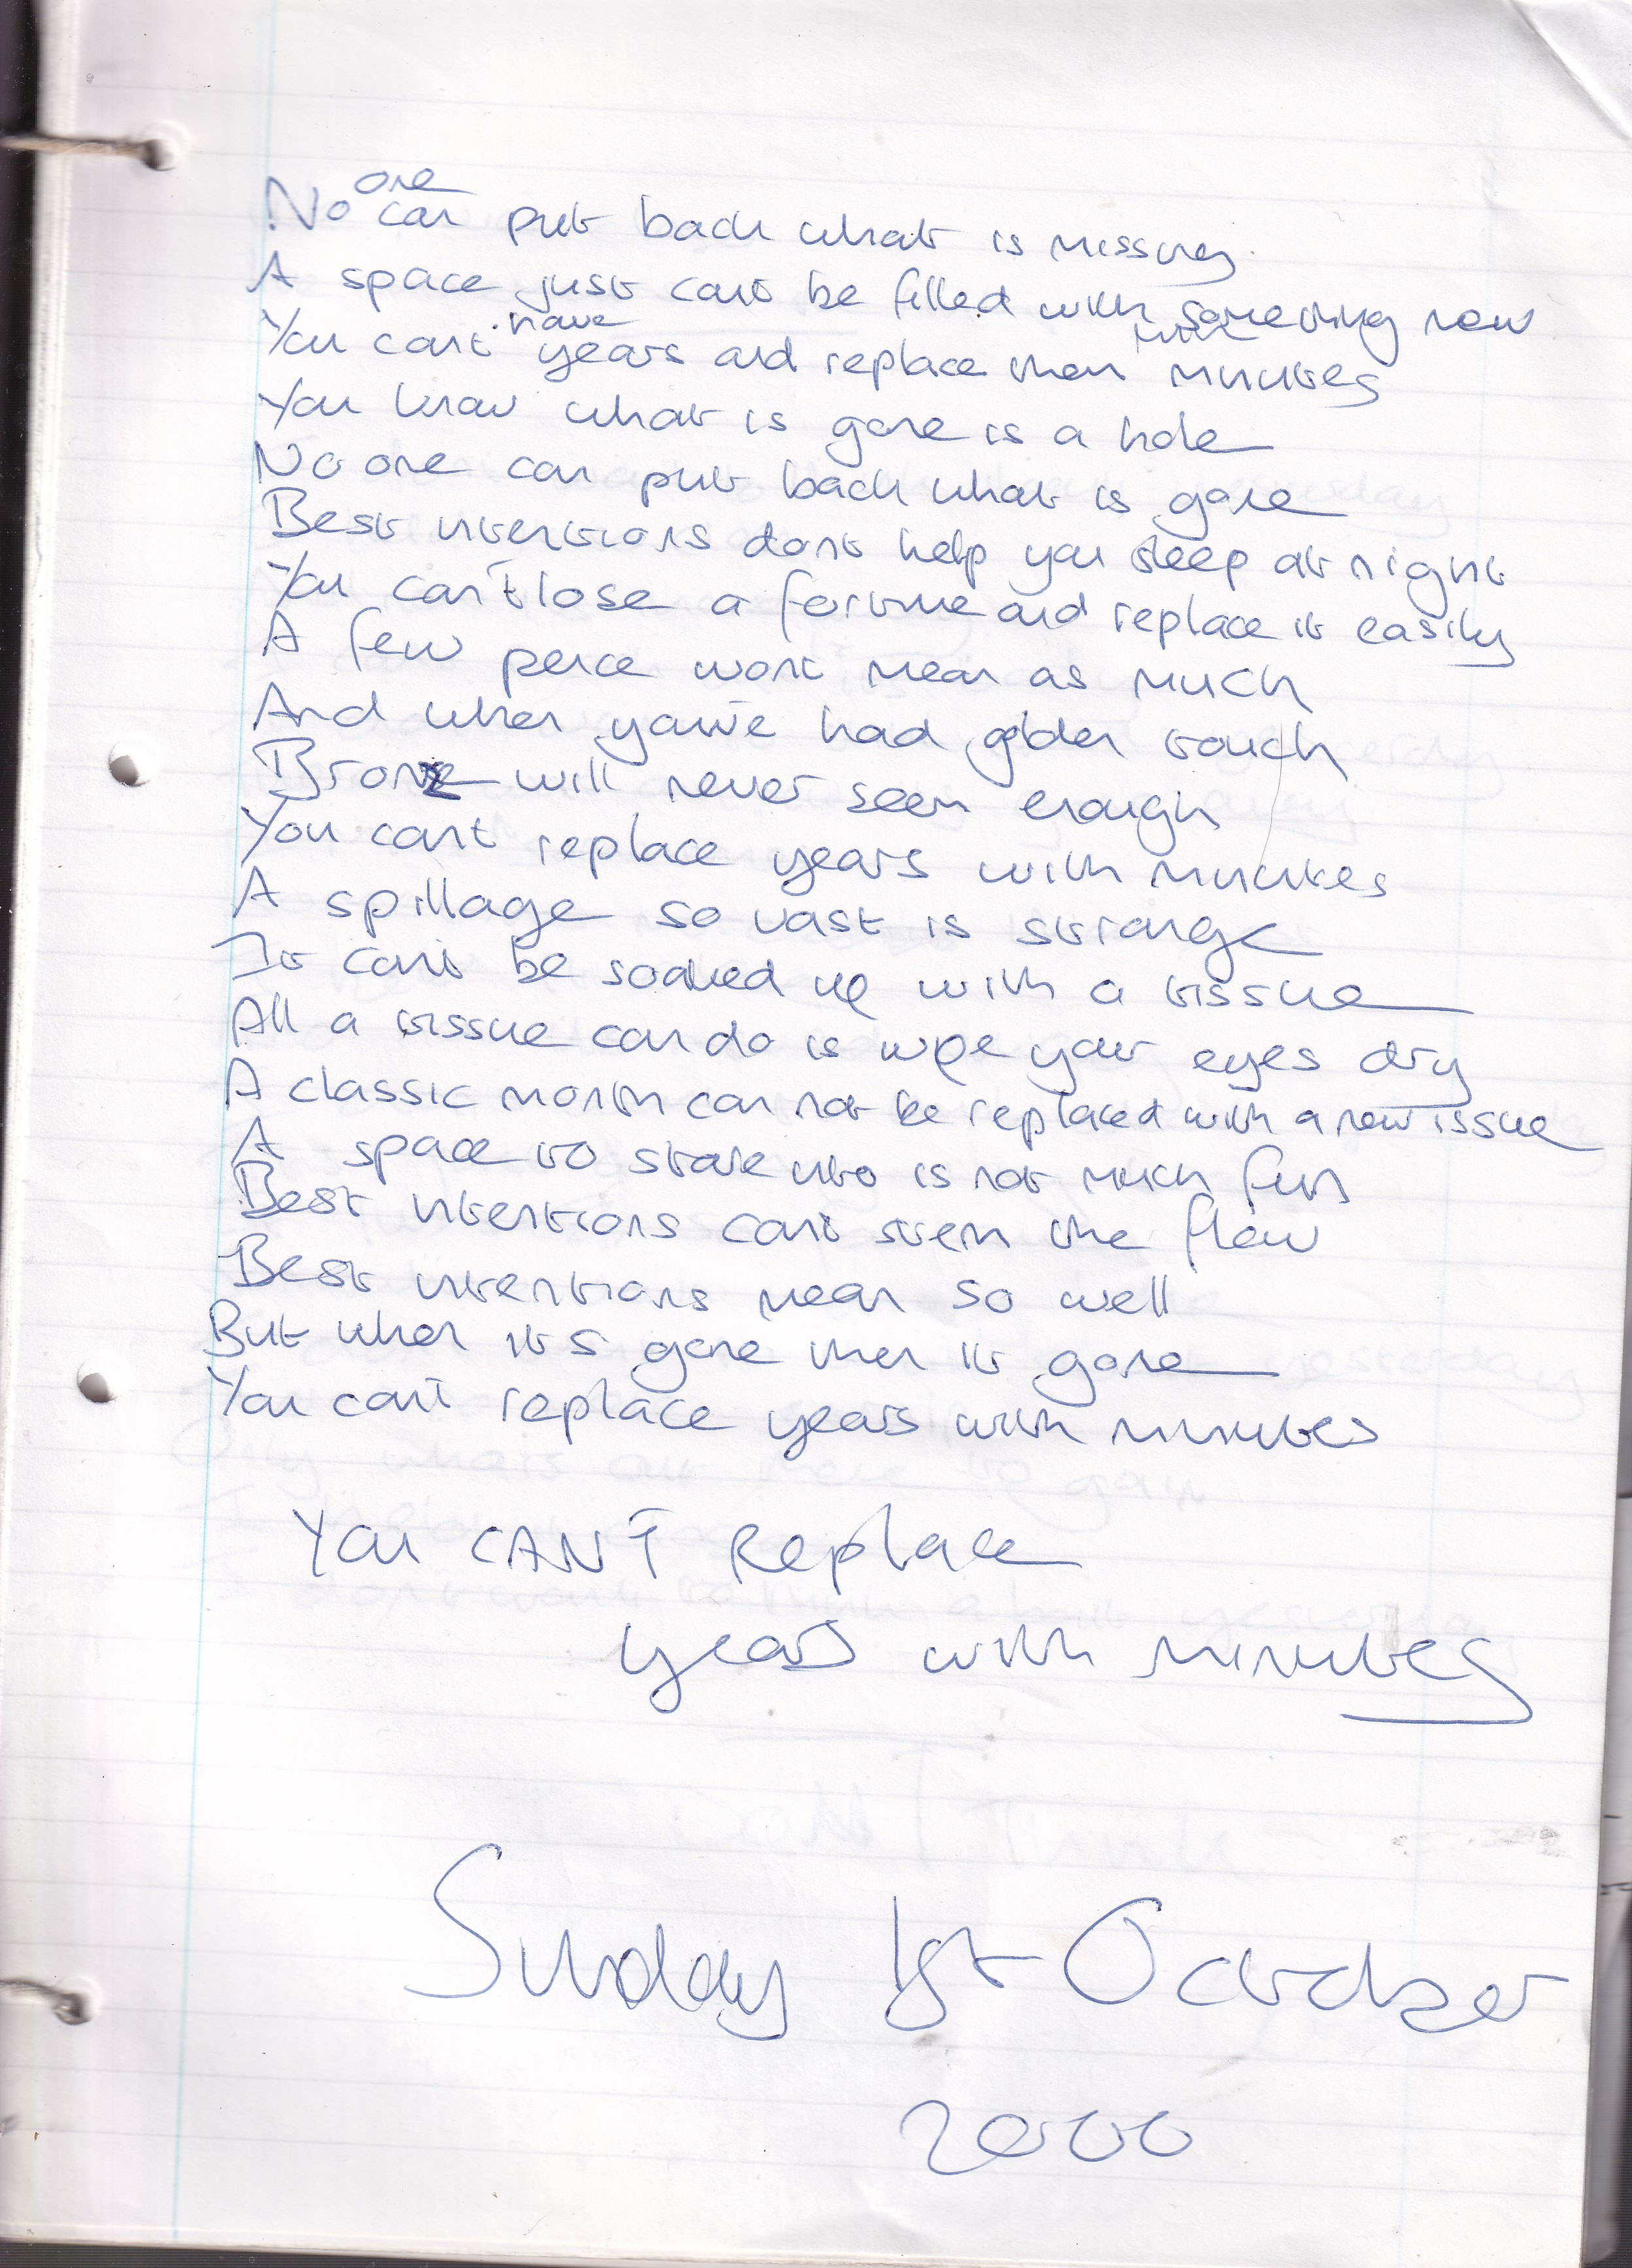 No one can put back what is missing.
A space just cant be filled with something new
You cant have years and replace them with minutes
You know what is gone is a hole
No one can put back what is gone
Best intentions dont help you sleep at night
You can't lose a fortune and replace it easily
A few pence wont mean as much
And when you've had golden touch
Bronze will never seem enough
You cant replace years with minutes
A spillage so vast is strange
It cant be soaked up with a tissue
All a tissue can do is wipe your eyes dry
A classic month can not be replaced with a new issue
A space to stare into is not much fun
Best intentions cant stem the flow
Best intentions mean so well
But when its gone then it gone
You can't replace years with minutes
You CAN'T Replace
years with minutes
Sunday 1st October
2000